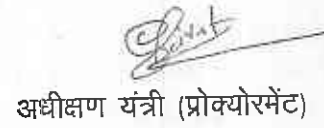 अधीक्षण यंत्री (प्रोक्योरमेंट)